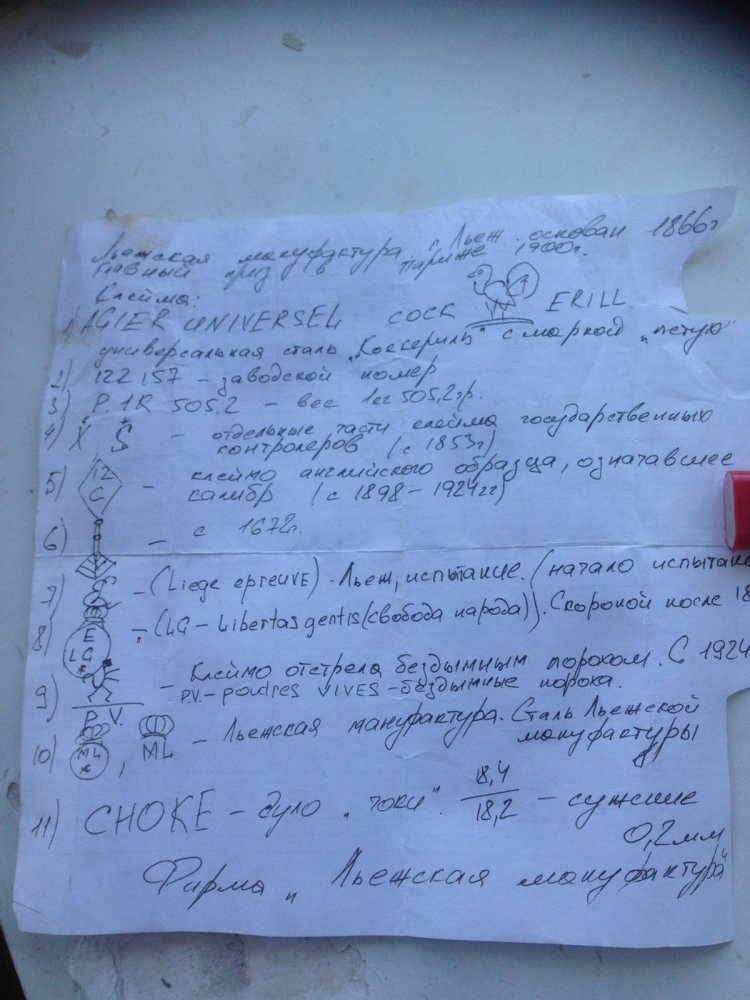 Льежская мануфактура "Льеж основан 1866г
главный приз в Париже 1900г.
Клейма:
1) AGIER UNIVERSEL COCK ERILL
универсальная сталь "Коккериль" с маркой "петух"
2) 122157 – заводской номер
3) P. 1R 505.2 – вес 1кг 505,2гр.
4) X S – отдельные части клейма государственных
контролеров (с 1853г)
5) 12 C – клеймо английского образца, означавшее
калибр (с 1898 – 1924гг)
6) – с 1672г.
7) – (Liege epreuve). Льеж, испытание. (начало испытани
8) E LG * – (LG – Libertas gentis (свобода народа)). С короной после 18
9) P.V. – Клеймо отстрела бездымным порохом. С 1924
P.V. – poudres VIVES – бездымные пороха.
10) ML *, ML – Льежская мануфактура. Сталь Льежской
мануфактуры
11) CHOKE – дуло "чок". 18,4 / 18,2 – сужение
0,2мм
Фирма "Льежская мануфактура"